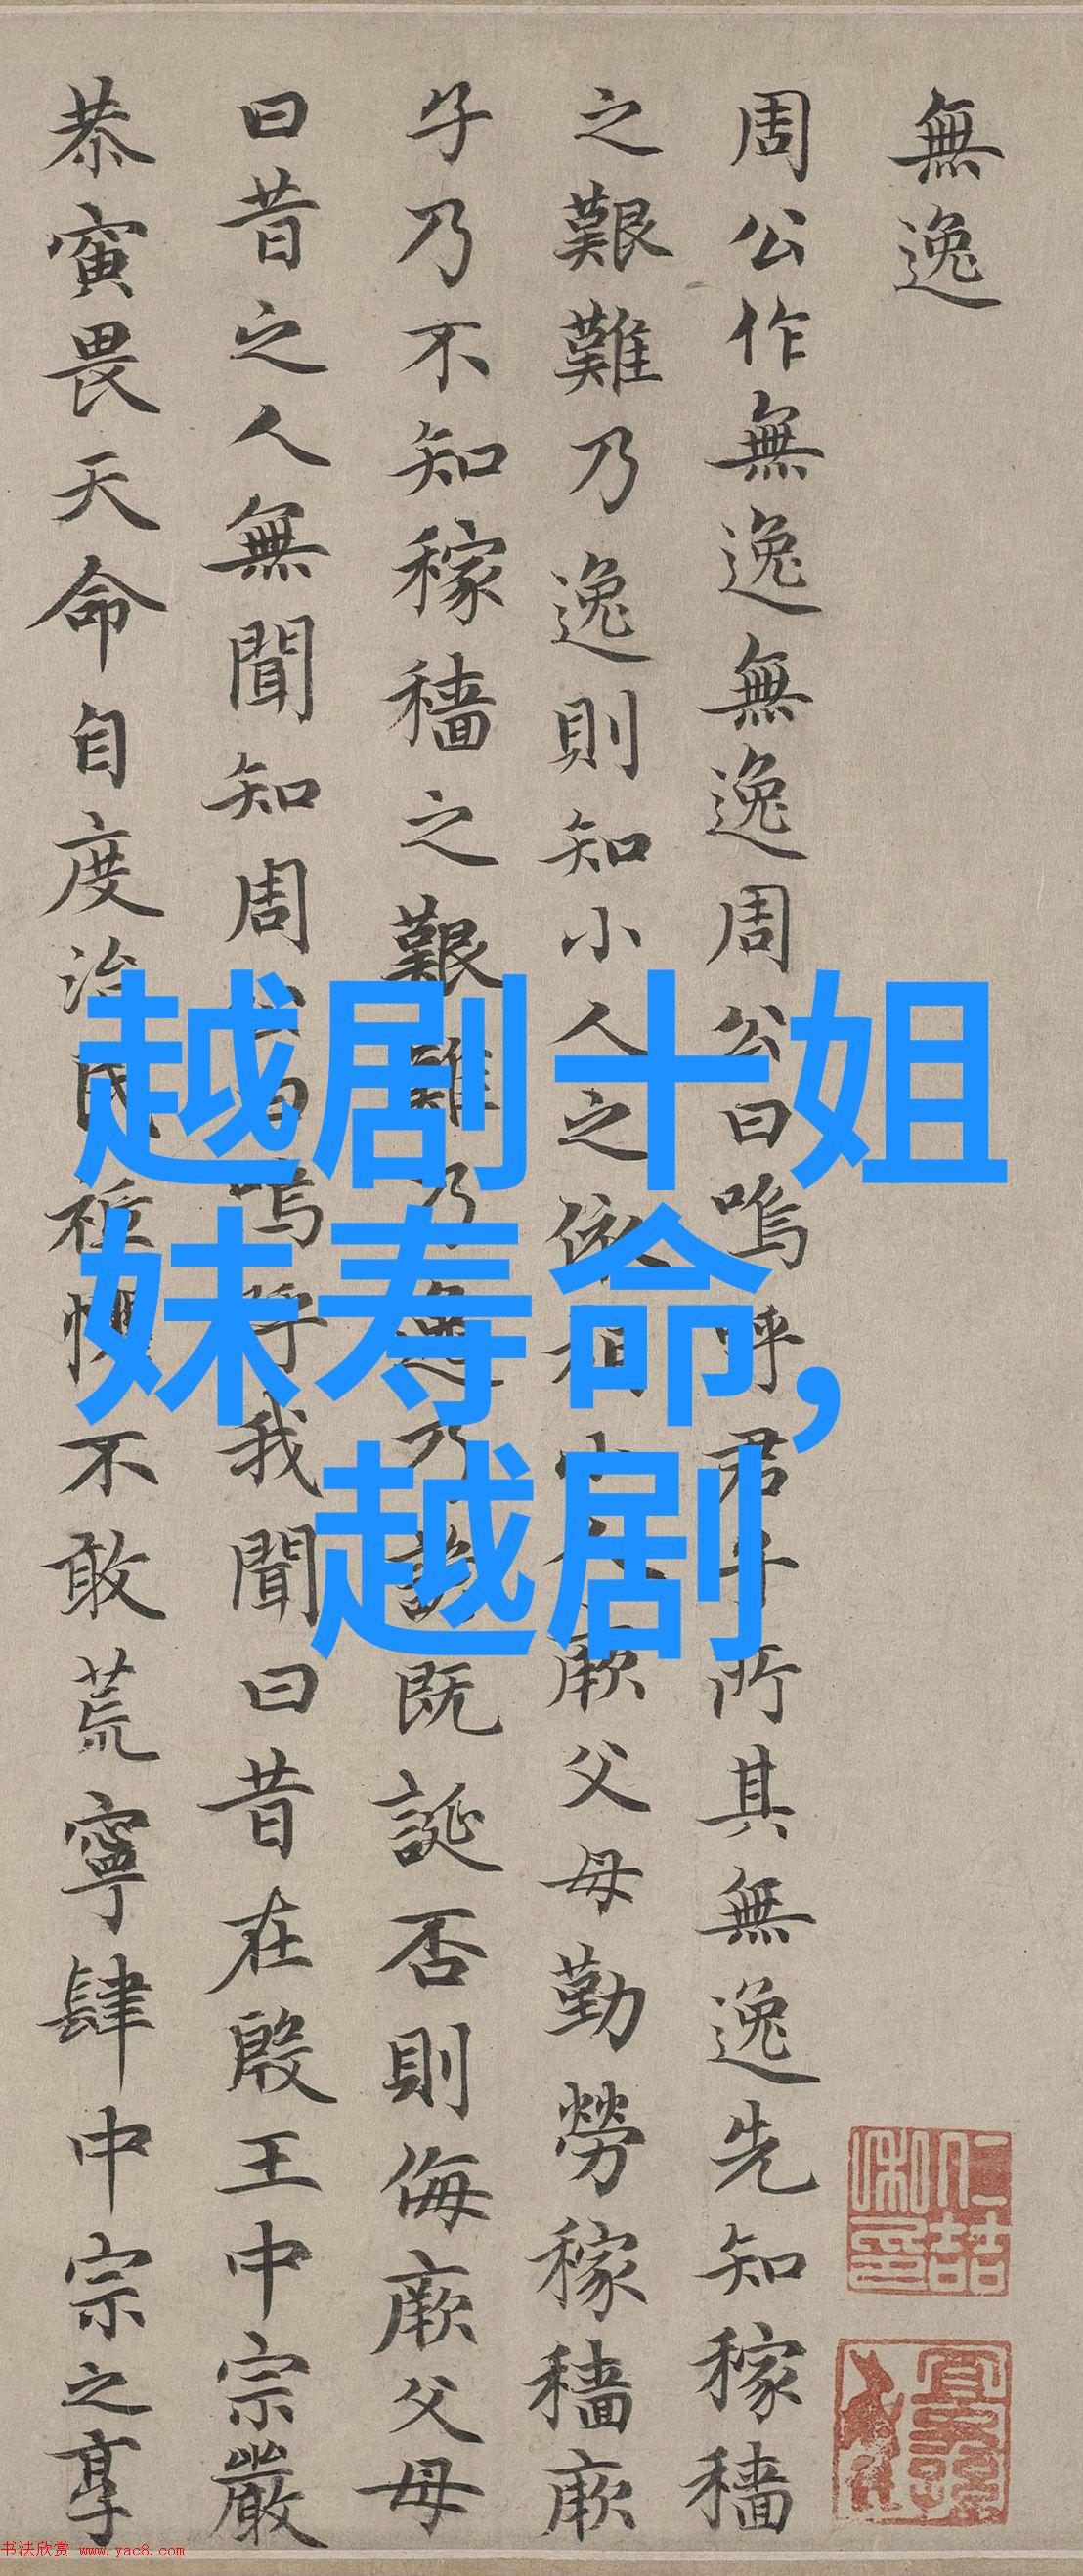 無逸
周公作無逸無逸周公曰嗚呼君子所其無逸先知稼穡
之艱難乃逸則知小人之依相小人厥父母勤勞稼穡厥
子乃不知稼穡之艱難乃逸乃諺既誕否則侮厥父母
曰昔之人無聞知周公曰嗚呼我聞曰昔在殷王中宗嚴
恭寅畏天命自度治民祗懼不敢荒寧肆中宗之享
越剧十姐
妹寿命,
越剧
书法欣赏 www.yac8.com